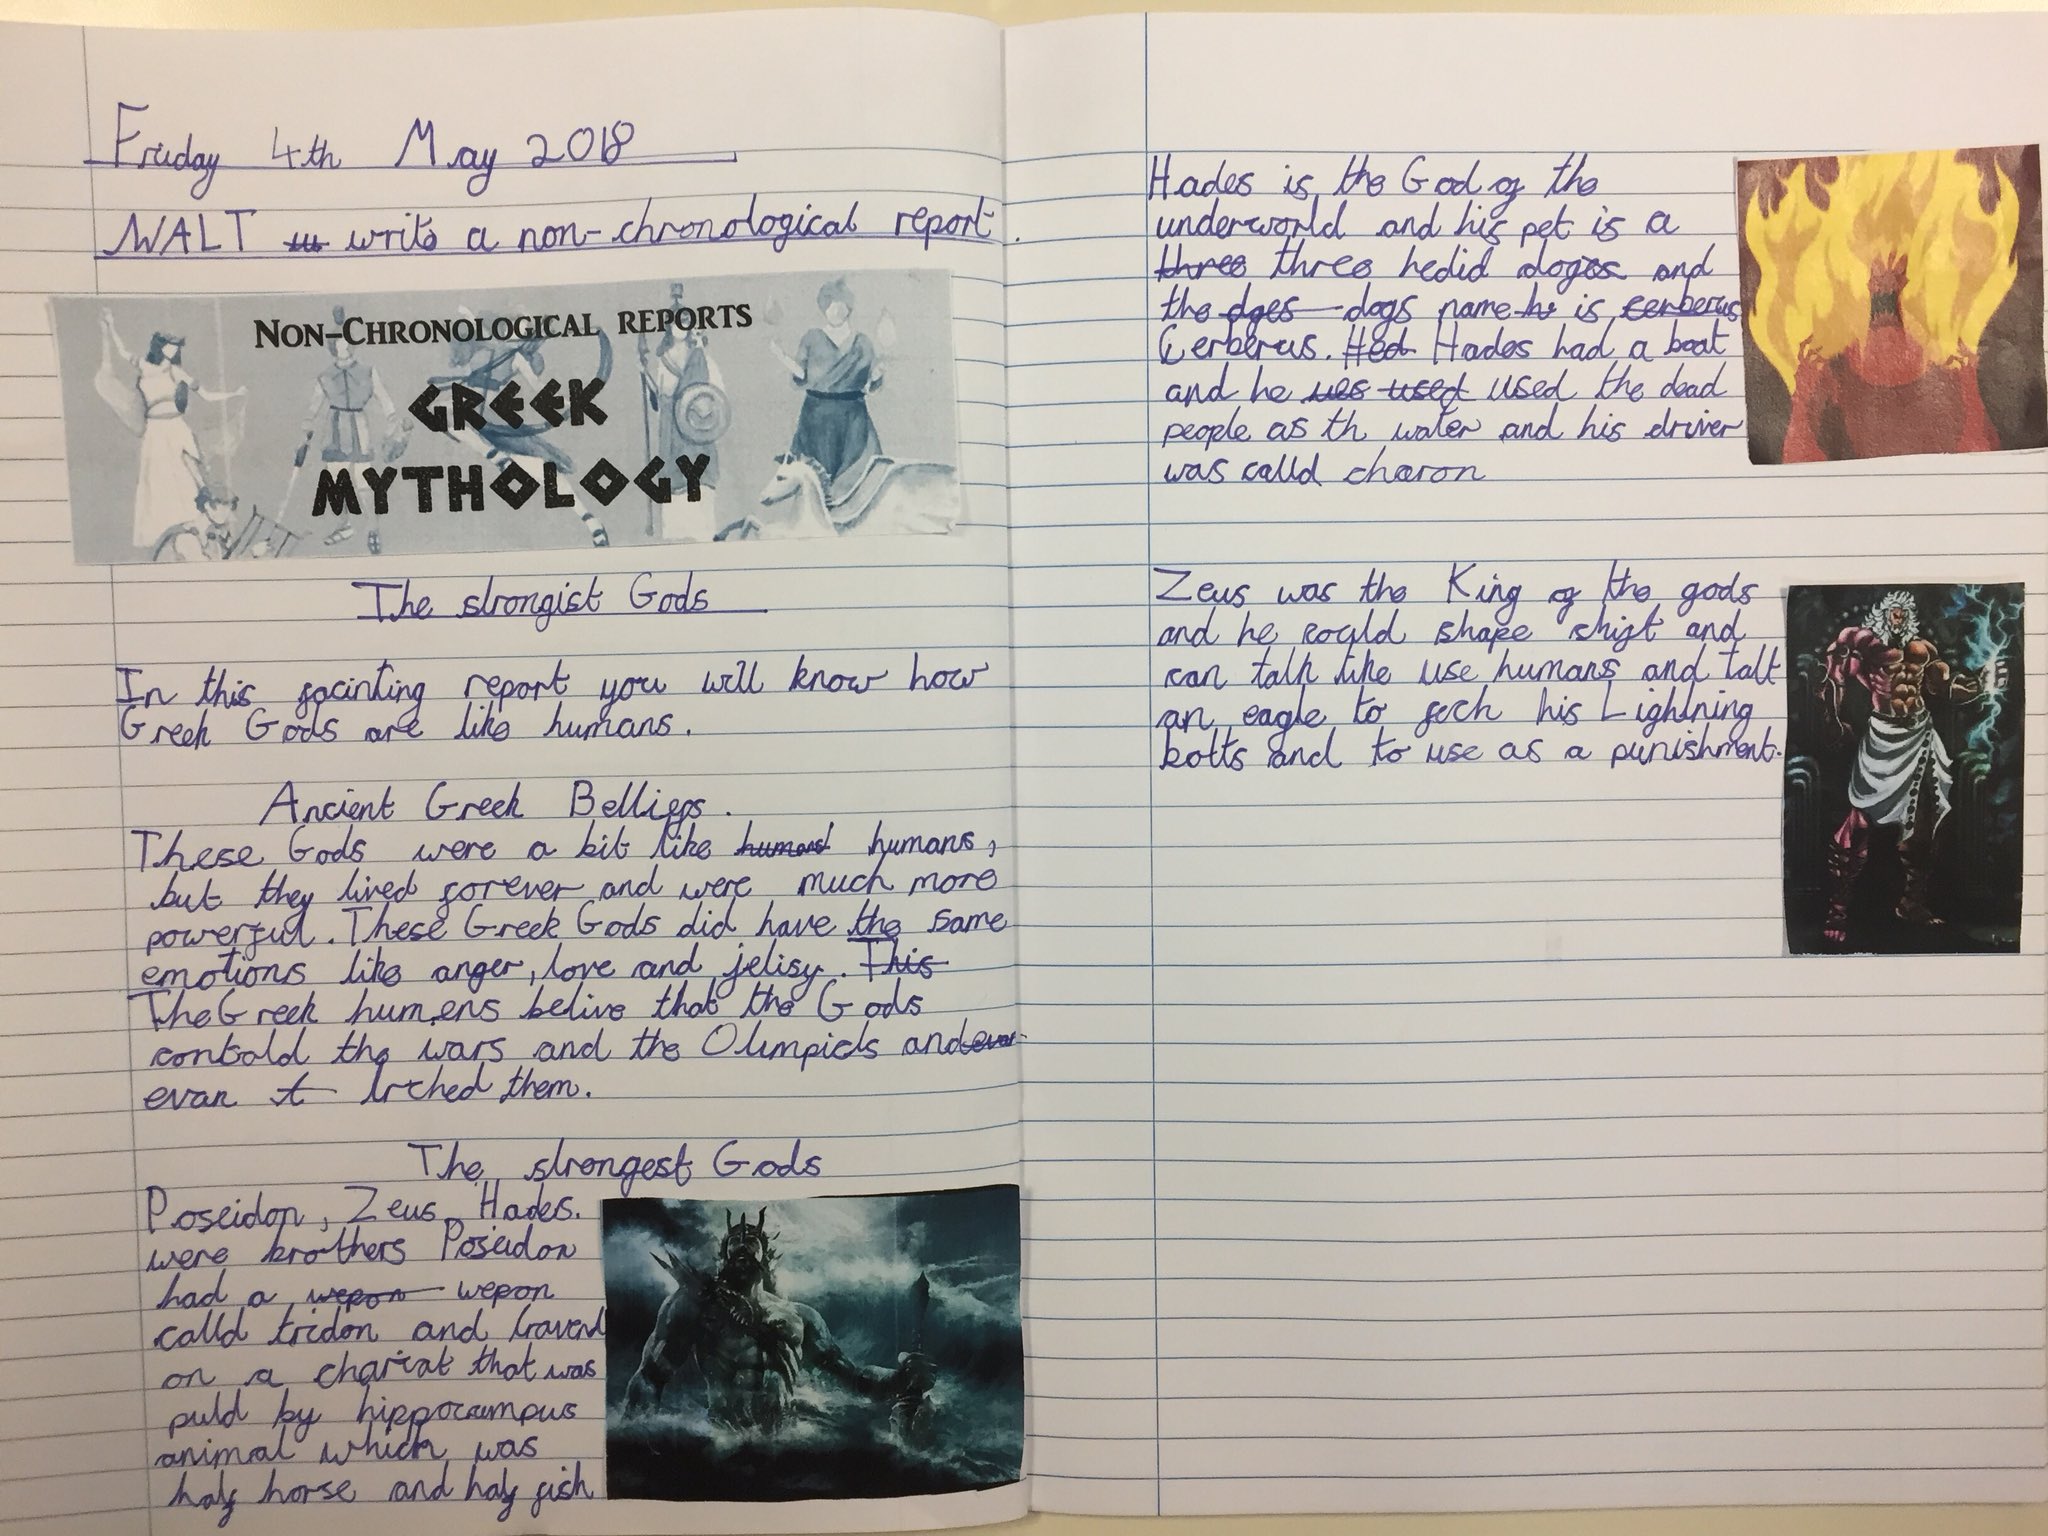 Friday 4th May 2018
WALT write a non-chronological report.
NON-CHRONOLOGICAL REPORTS
GREEK
MYTHOLOGY
The strongist Gods
In this facinting report you will know how
Greek Gods are like humans.
Ancient Greek Belliefs.
These Gods were a bit like humans humans,
but they lived forever and were much more
powerful. These Greek Gods did have the same
emotions like anger, love and jelisy. This
The Greek humens belive that the Gods
contold the wars and the Olimpicls and evar
evan t them.
The strongest Gods
Poseidon, Zeus, Hades.
were brothers Poseidon
had a wepon wepon
calld tridon and traverld
on a chariat that was
puld by hippocampus
animal which was
half horse and half fish
Hades is the God of the
underworld and his pet is a
three three hedid doges and
the doges dogs name h is cerberus
Cerberus. Hed Hades had a boat
and he ues used used the dead
people as th water and his driver
was calld charon
Zeus was the King of the gods
and he could shape shift and
can talk like use humans and talk
an eagle to fech his Lightning
botts and to use as a punishment.